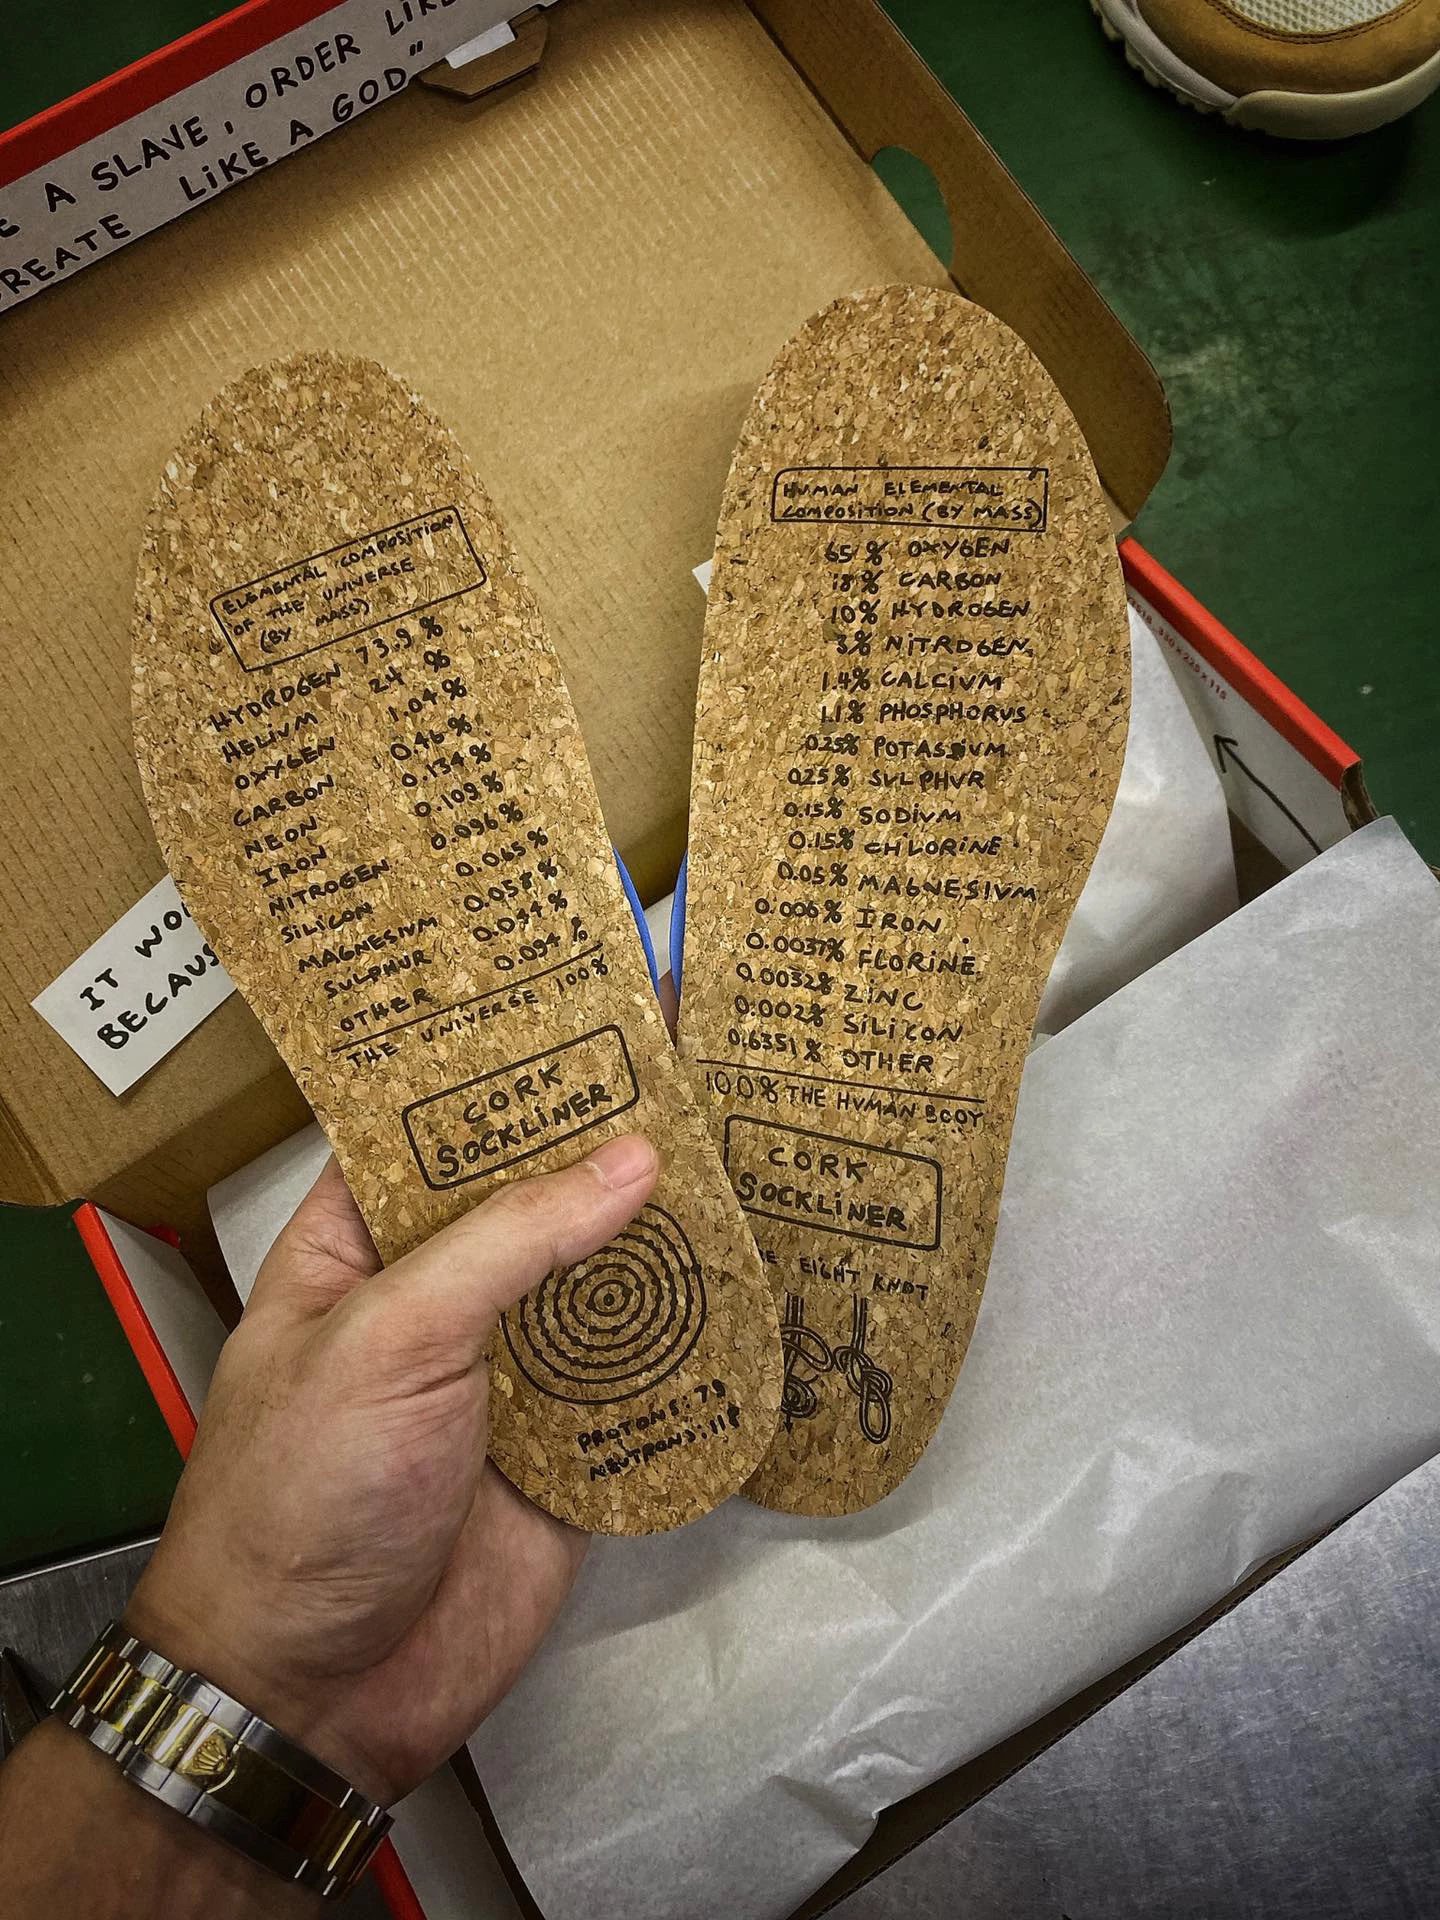 A SLAVE, ORDER LIKE
CREATE LIKE A GOD"
ELEMENTAL COMPOSITION
OF THE UNIVERSE
(BY MASS)
HYDROGEN 73.9 %
HELIUM 24 %
OXYGEN 1.04 %
CARBON 0.46 %
NEON 0.134 %
IRON 0.109 %
NITROGEN 0.096 %
SILICON 0.065 %
MAGNESIUM 0.058 %
SULPHUR 0.044 %
OTHER 0.094 %
THE UNIVERSE 100%
CORK
SOCKLINER
PROTONS: 79
NEUTRONS: 118
HUMAN ELEMENTAL
COMPOSITION (BY MASS)
65 % OXYGEN
18 % CARBON
10% HYDROGEN
3% NITROGEN
1.4% CALCIUM
1.1% PHOSPHORUS
0.25% POTASSIUM
0.25% SULPHUR
0.15% SODIUM
0.15% CHLORINE
0.05% MAGNESIUM
0.006% IRON
0.0037% FLORINE
0.0032% ZINC
0.002% SILICON
0.6351% OTHER
100% THE HUMAN BODY
CORK
SOCKLINER
EIGHT KNOT
IT WO
BECAUS
330×225×115